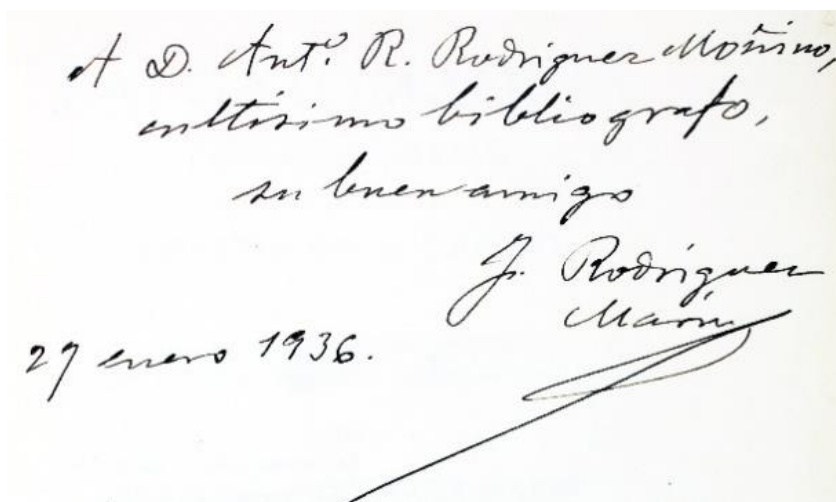 A D. Antº. R. Rodriguez Moñino,
cultísimo bibliografo,
su buen amigo
F. Rodriguez
Marín
29 enero 1936.